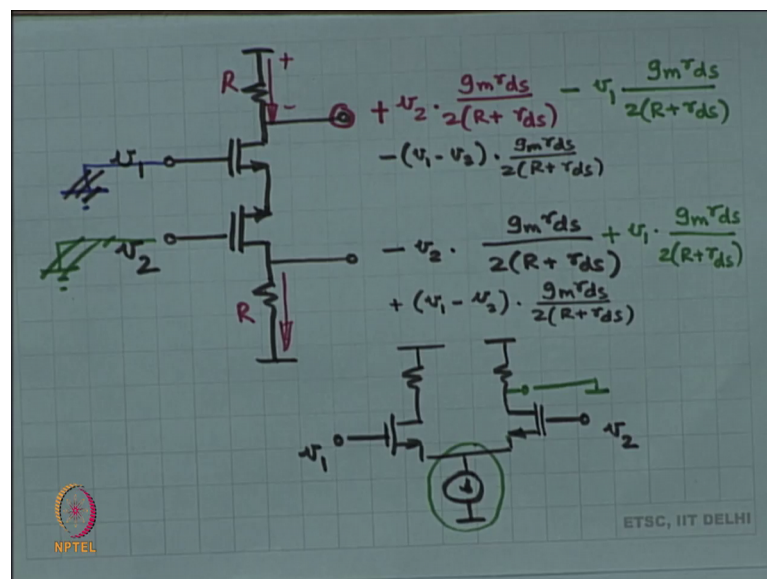 R + -
+ v₂ · gₘrds / 2(R + rds) - v₁ gₘrds / 2(R + rds)
v₁
- (v₁ - v₂) · gₘrds / 2(R + rds)
v₂
- v₂ · gₘrds / 2(R + rds) + v₁ · gₘrds / 2(R + rds)
R
+ (v₁ - v₂) · gₘrds / 2(R + rds)
v₁ v₂
NPTEL
ETSC, IIT DELHI